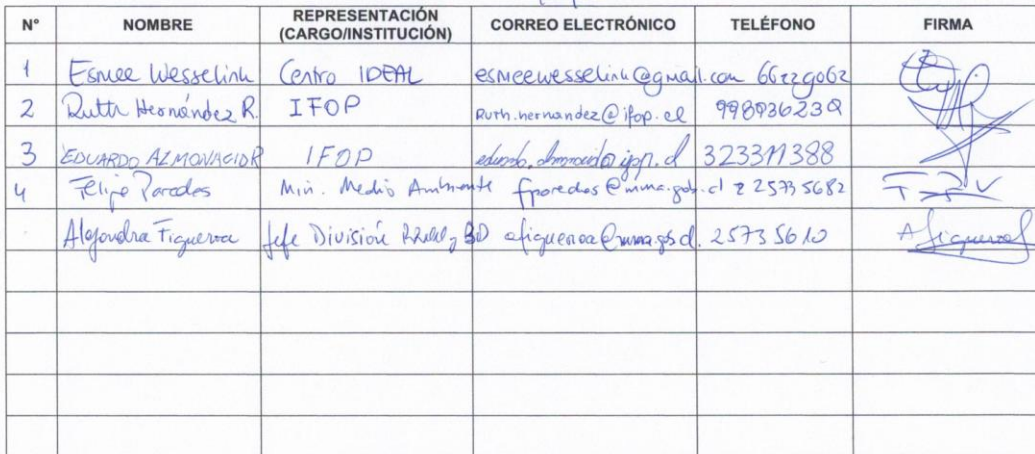 N° NOMBRE REPRESENTACIÓN (CARGO/INSTITUCIÓN) CORREO ELECTRÓNICO TELÉFONO FIRMA
1 Esmee Wesselink Centro IDEAL esmeewesselink@gmail.com 66229062
2 Ruth Hernández R. IFOP Ruth.hernandez@ifop.cl
3 EDUARDO ALMONACID R IFOP
4 Felipe Paredes Min. Medio Ambiente fparedes@mma.gob.cl 2 25735682
Alejandra Figueroa Jefe División afigueroa@mma.gob.cl 25735610 A Figueroa